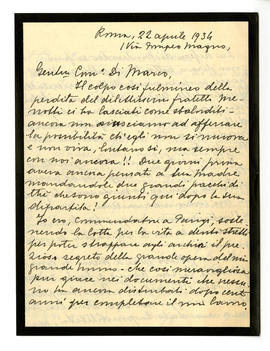 Roma, 22 aprile 1934
1 Via Pompeo Magno,
Gentm Com: Di Marco,
Il colpo così fulmineo della
perdita del dilettissimo fratello Me-
notti ci ha lasciati come sbalorditi -
ancora non ad afferrare
la possibilità ch'egli non si muova
e non viva, lontano sì, ma sempre
con noi ancora!! Due giorni prima
aveva ancora pensato a sua madre
mandandole due grandi pacchi di
thè che sono giunti qui dopo la sua
dipartita!
Io ero, Commendatore a Parigi, soste-
nendo la lotta per la vita a denti stretti
per poter strappare agli archivi il pre-
zioso segreto della grande opera del mio
grande nonno - che così meravigliosa
pur giace nei documenti che nessu-
no ha ancora disturbati dopo cent'
anni per completare il mio lavoro.